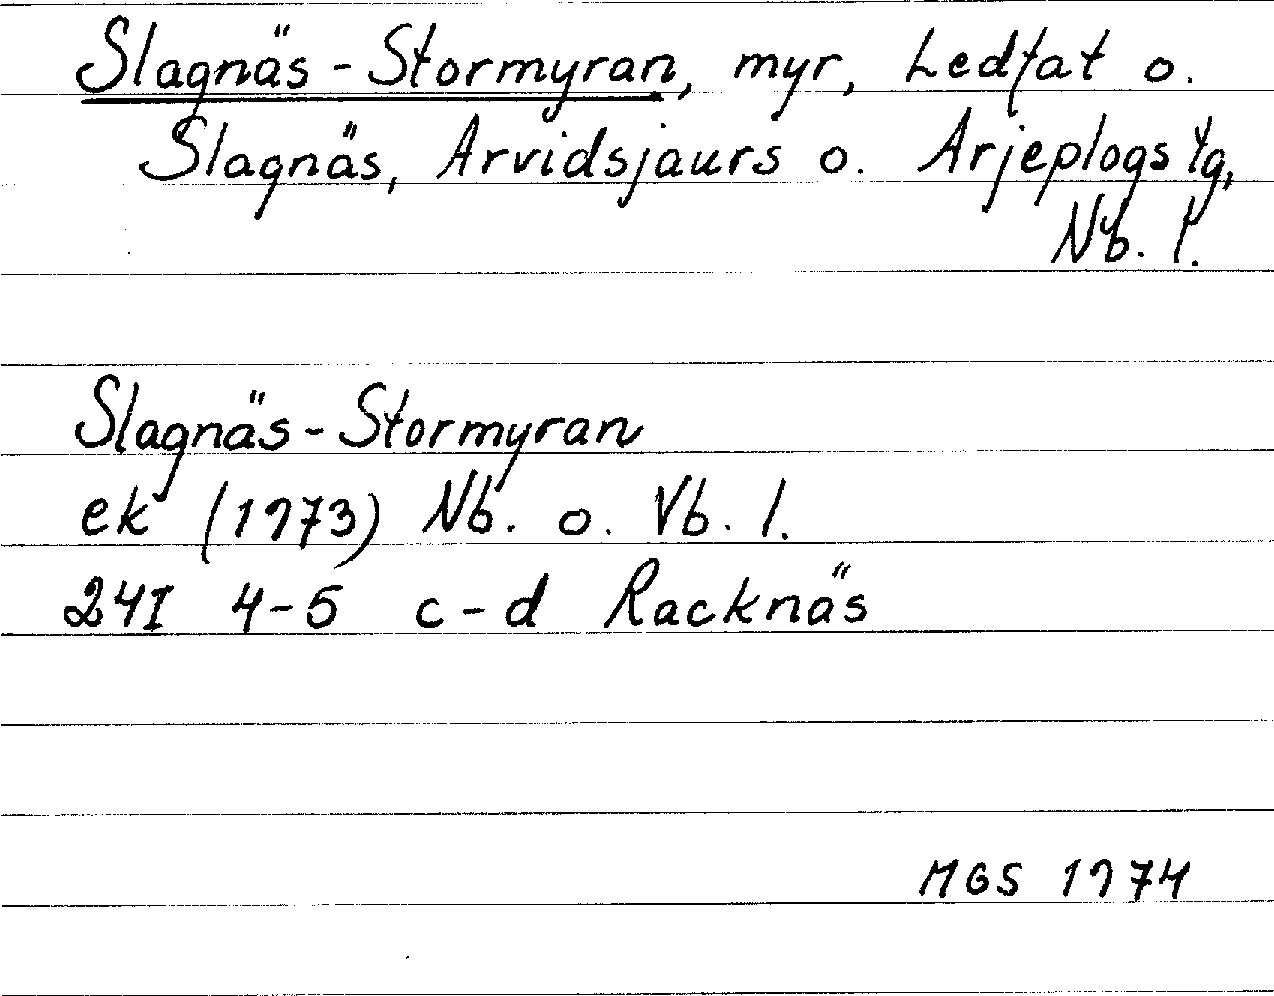 Slagnäs-Stormyran, myr, Ledfat o.
Slagnäs, Arvidsjaurs o. Arjeplogs tg,
Nb. l.
Slagnäs-Stormyran
ek (1973) Nb. o. Vb. l.
24I 4-5 c-d Racknäs
MGS 1974